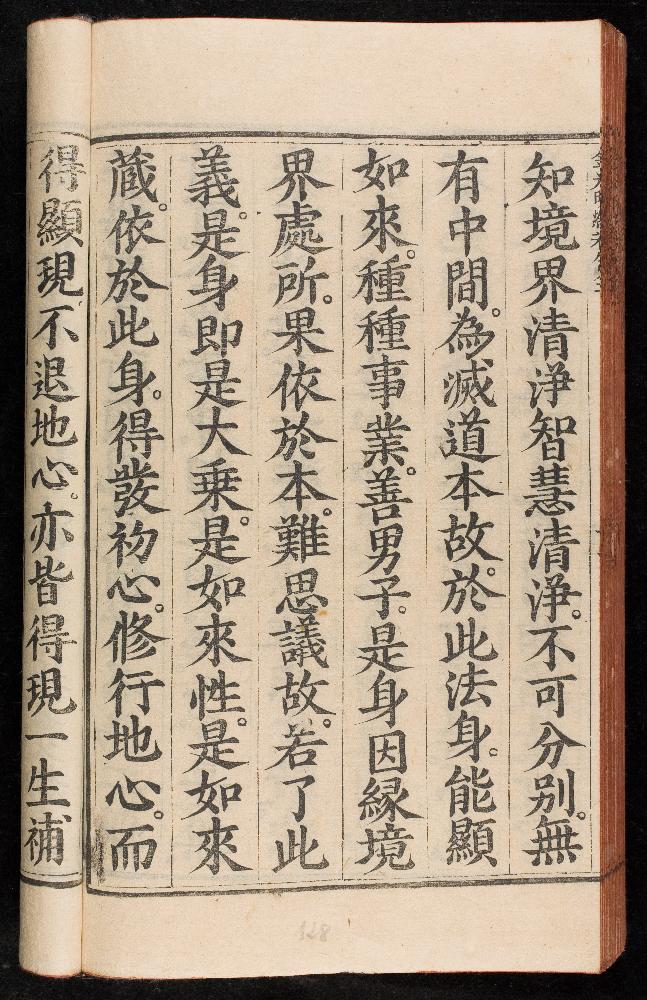 知境界清淨智慧清淨。不可分别。無
有中間。為滅道本故。於此法身。能顯
如來。種種事業。善男子。是身因緣境
界處所。果依於本。難思議故。若了此
義。是身即是大乘。是如來性。是如來
蔵。依於此身。得發初心。修行地心。而
得顯現。不退地心。亦皆得現一生補
128